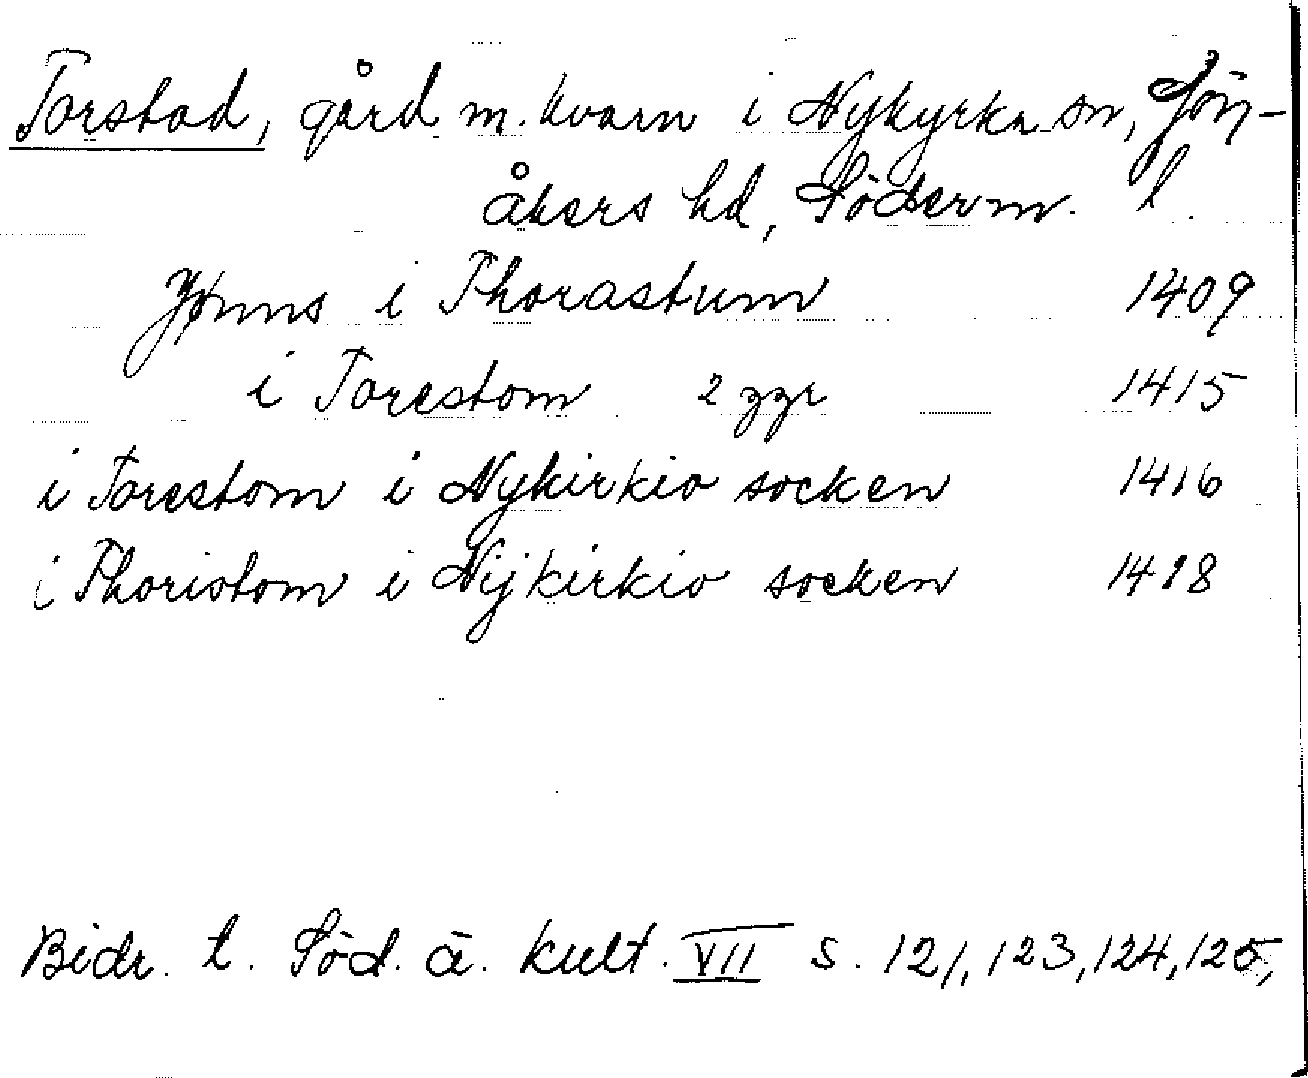 Torstad, gård m. kvarn i Nykyrka sn, Jön-
åkers hd, Söderm. l.
Jønns i Thorastum 1409
i Torestom 2 ggr 1415
i Torestom i Nykirkio socken 1416
i Thoristom i Nijkirkio socken 1418
Bidr. t. Söd. ä. kult. VII s. 121, 123, 124, 125,